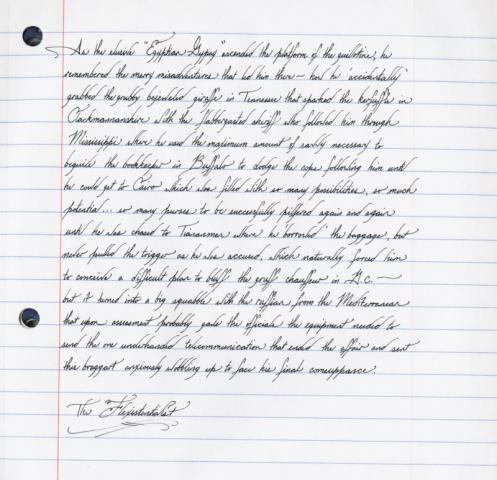 As the elusive "Egyptian Gypsy" ascended the platform of the guillotine, he
remembered the many misadventures that led him there — how he "accidentally"
grabbed the grubby bejeweled giraffe in Tennessee that sparked the kerfuffle in
Clackmannanshire with the flabbergasted sheriff who followed him through
Mississippi where he used the maximum amount of savvy necessary to
beguile the bookkeeper in Buffalo to dodge the cops following him until
he could get to Cairo which was filled with so many possibilities, so much
potential... so many purses to be successfully pilfered again and again
until he was chased to Tiananmen where he "borrowed" the baggage, but
never pulled the trigger as he was accused, which naturally forced him
to conceive a difficult plan to bluff the gruff chauffeur in D.C. —
but it turned into a big squabble with the ruffian from the Mediterranean
that upon assessment probably gave the officials the equipment needed to
send the one underhanded telecommunication that ended the affair and sent
this braggart anxiously wobbling up to face his final comeuppance.
The Flexistentialist